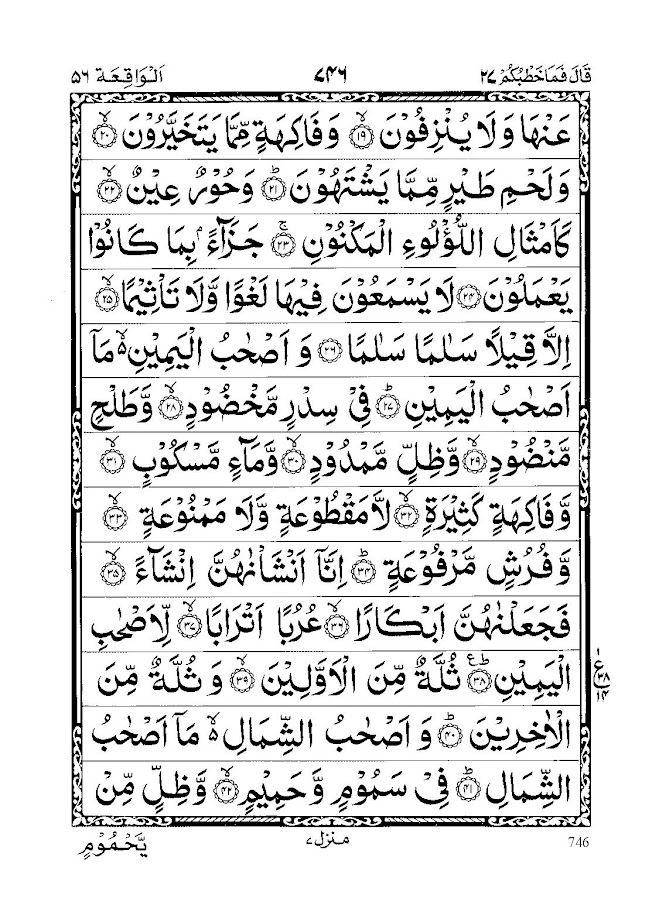 قَالَ فَمَا خَطْبُكُمْ ٢٧ ٧٤٦ اَلْوَاقِعَة ٥٦
عَنْهَا وَلَا يُنْزِفُوْنَ ۙ﴿١٩﴾ وَفَاكِهَةٍ مِّمَّا يَتَخَيَّرُوْنَ ۙ﴿٢٠﴾
وَلَحْمِ طَيْرٍ مِّمَّا يَشْتَهُوْنَ ؕ﴿٢١﴾ وَحُوْرٌ عِيْنٌ ۙ﴿٢٢﴾
كَاَمْثَالِ اللُّؤْلُوءِ الْمَكْنُوْنِ ۚ﴿٢٣﴾ جَزَآءًۢ بِمَا كَانُوْا
يَعْمَلُوْنَ ﴿٢٤﴾ لَا يَسْمَعُوْنَ فِيْهَا لَغْوًا وَّلَا تَاْثِيْمًا ۙ﴿٢٥﴾
اِلَّا قِيْلًا سَلٰمًا سَلٰمًا ﴿٢٦﴾ وَ اَصْحٰبُ الْيَمِيْنِ ۙ۬ مَاۤ
اَصْحٰبُ الْيَمِيْنِ ؕ﴿٢٧﴾ فِيْ سِدْرٍ مَّخْضُوْدٍ ۙ﴿٢٨﴾ وَّطَلْحٍ
مَّنْضُوْدٍ ۙ﴿٢٩﴾ وَّظِلٍّ مَّمْدُوْدٍ ۙ﴿٣٠﴾ وَّمَآءٍ مَّسْكُوْبٍ ۙ﴿٣١﴾
وَّفَاكِهَةٍ كَثِيْرَةٍ ۙ﴿٣٢﴾ لَّا مَقْطُوْعَةٍ وَّلَا مَمْنُوْعَةٍ ۙ﴿٣٣﴾
وَّفُرُشٍ مَّرْفُوْعَةٍ ؕ﴿٣٤﴾ اِنَّاۤ اَنْشَاْنٰهُنَّ اِنْشَآءً ۙ﴿٣٥﴾
فَجَعَلْنٰهُنَّ اَبْكَارًا ۙ﴿٣٦﴾ عُرُبًا اَتْرَابًا ۙ﴿٣٧﴾ لِّاَصْحٰبِ
الْيَمِيْنِ ؕ﴿٣٨﴾ ثُلَّةٌ مِّنَ الْاَوَّلِيْنَ ۙ﴿٣٩﴾ وَ ثُلَّةٌ مِّنَ
الْاٰخِرِيْنَ ؕ﴿٤٠﴾ وَ اَصْحٰبُ الشِّمَالِ ۙ۬ مَاۤ اَصْحٰبُ
الشِّمَالِ ؕ﴿٤١﴾ فِيْ سَمُوْمٍ وَّحَمِيْمٍ ۙ﴿٤٢﴾ وَّظِلٍّ مِّنْ
ع ١ ٣٨ ١٤
746 منزل ٧ يَّحْمُوْمٍ